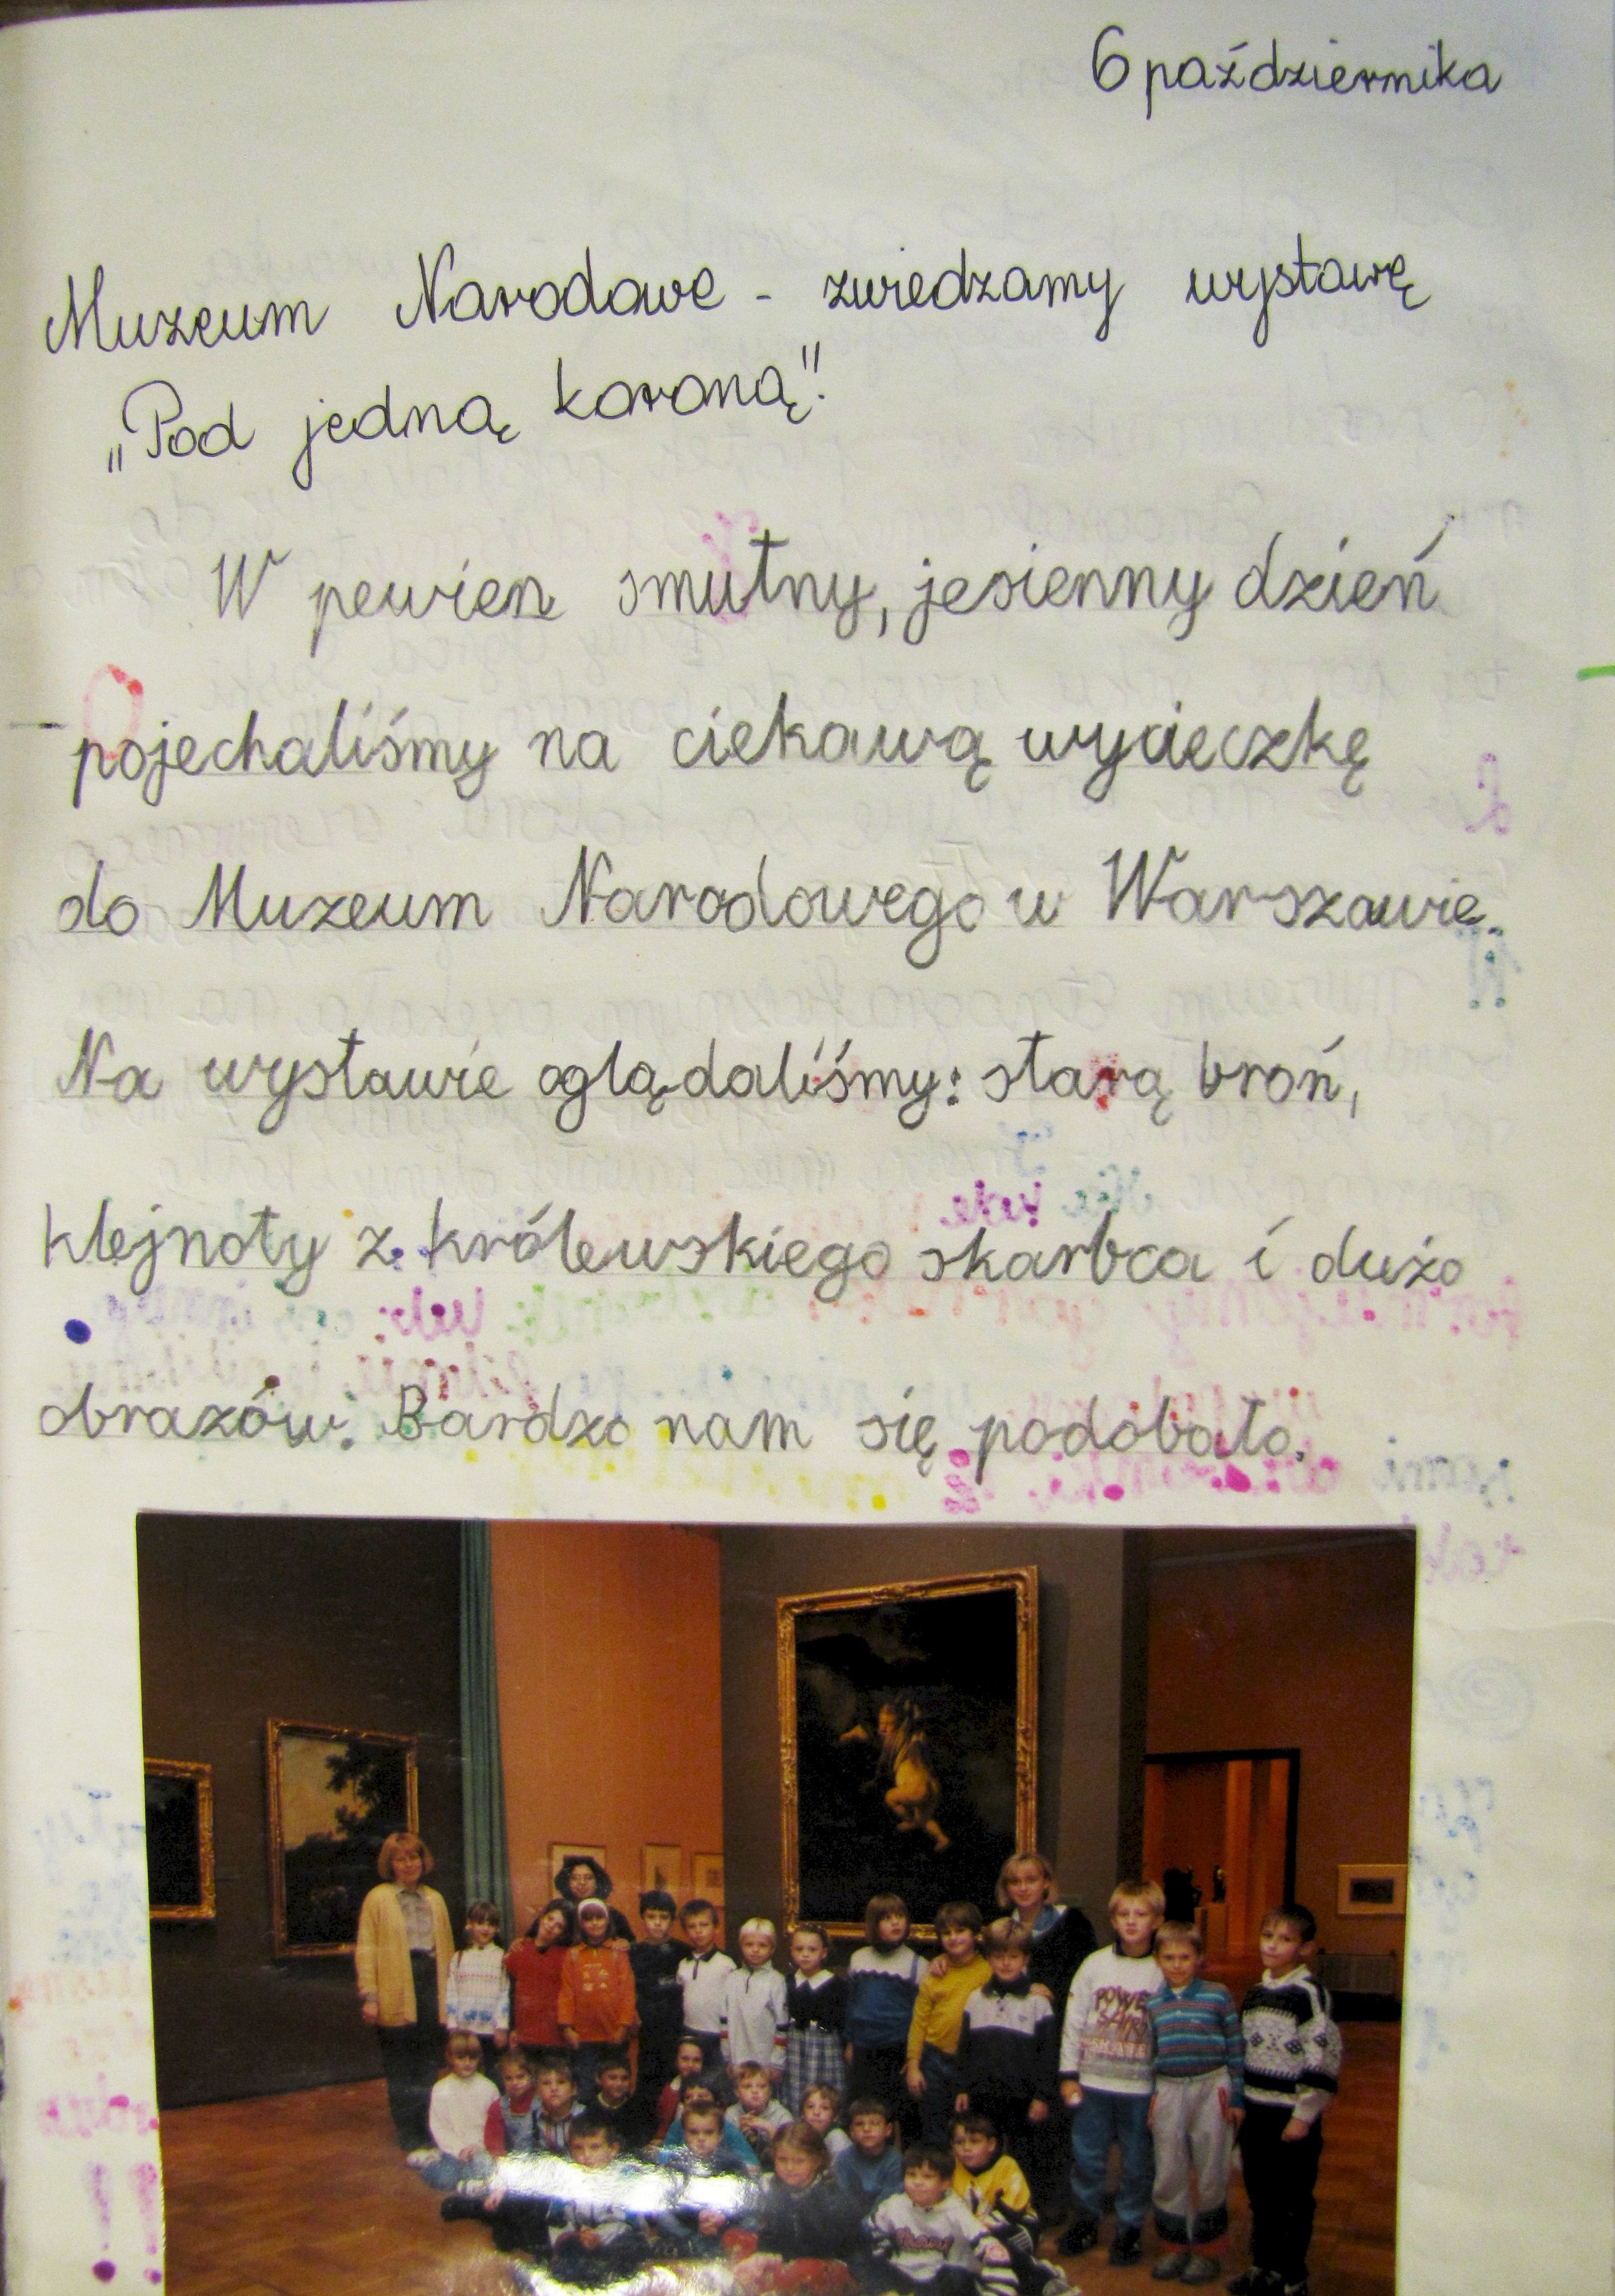 6 października
Muzeum Narodowe - zwiedzamy wystawę
„Pod jedną koroną".
W pewien smutny, jesienny dzień
pojechaliśmy na ciekawą wycieczkę
do Muzeum Narodowego w Warszawie.
Na wystawie oglądaliśmy: starą broń,
klejnoty z królewskiego skarbca i dużo
obrazów. Bardzo nam się podobało.